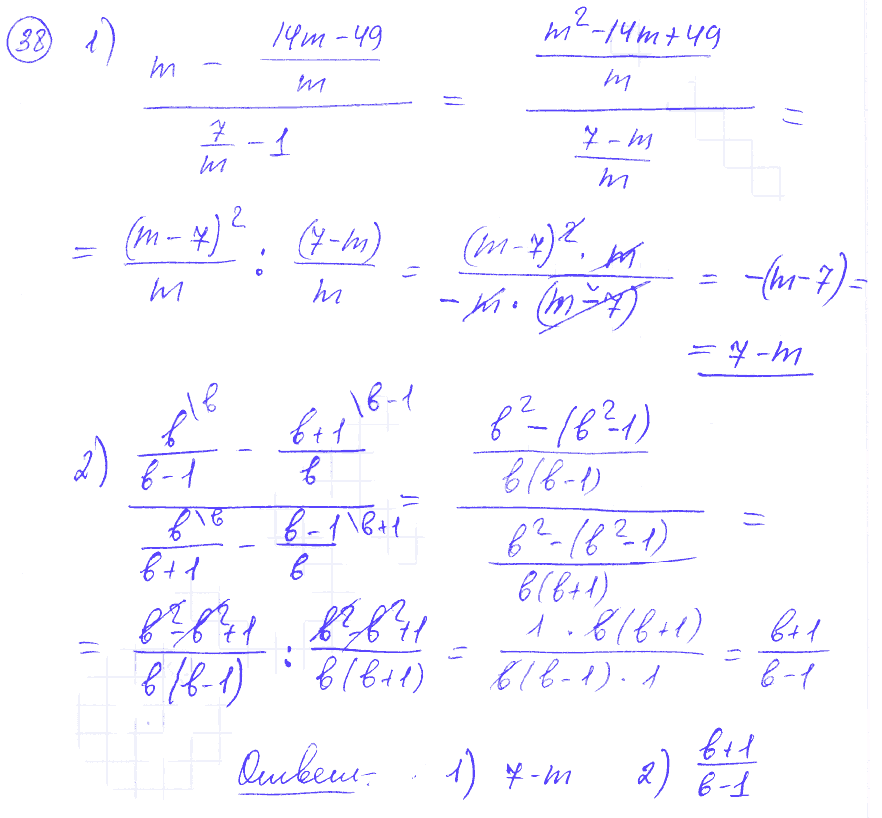 38 1) (m - (14m-49)/m) / (7/m - 1) = ((m²-14m+49)/m) / ((7-m)/m) =
= (m-7)²/m : (7-m)/m = ((m-7)²·m)/(-m·(m-7)) = -(m-7) =
= 7-m
2) (в\в/(в-1) - в+1\в-1/в) / (в\в/(в+1) - в-1\в+1/в) = ((в²-(в²-1))/(в(в-1))) / ((в²-(в²-1))/(в(в+1))) =
= (в²-в²+1)/(в(в-1)) : (в²-в²+1)/(в(в+1)) = (1·в(в+1))/(в(в-1)·1) = (в+1)/(в-1)
Ответ: 1) 7-m 2) (в+1)/(в-1)